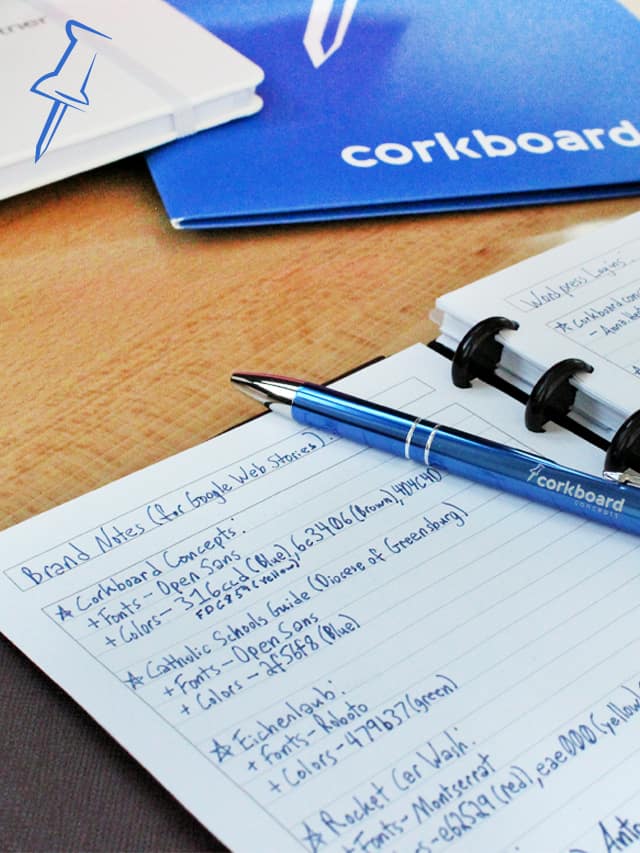 tner
corkboard
Wordpress Logins
☆ Corkboard conc
corkboard
concepts
Brand Notes (for Google Web Stories):
☆ Corkboard Concepts:
+ Fonts - Open Sans
+ Colors - 316ccd (Blue), 6c3406 (Brown), 404040
FDC859 (yellow)
☆ Catholic Schools Guide (Diocese of Greensburg)
+ Fonts - Open Sans
+ Colors - 2f56f8 (Blue)
☆ Eichenlaub:
+ Fonts - Roboto
+ Colors - 479b37 (green)
☆ Rocket Car Wash:
+ Fonts - Montserrat
rs - eb2529 (red), eae000 (yellow)
Antro